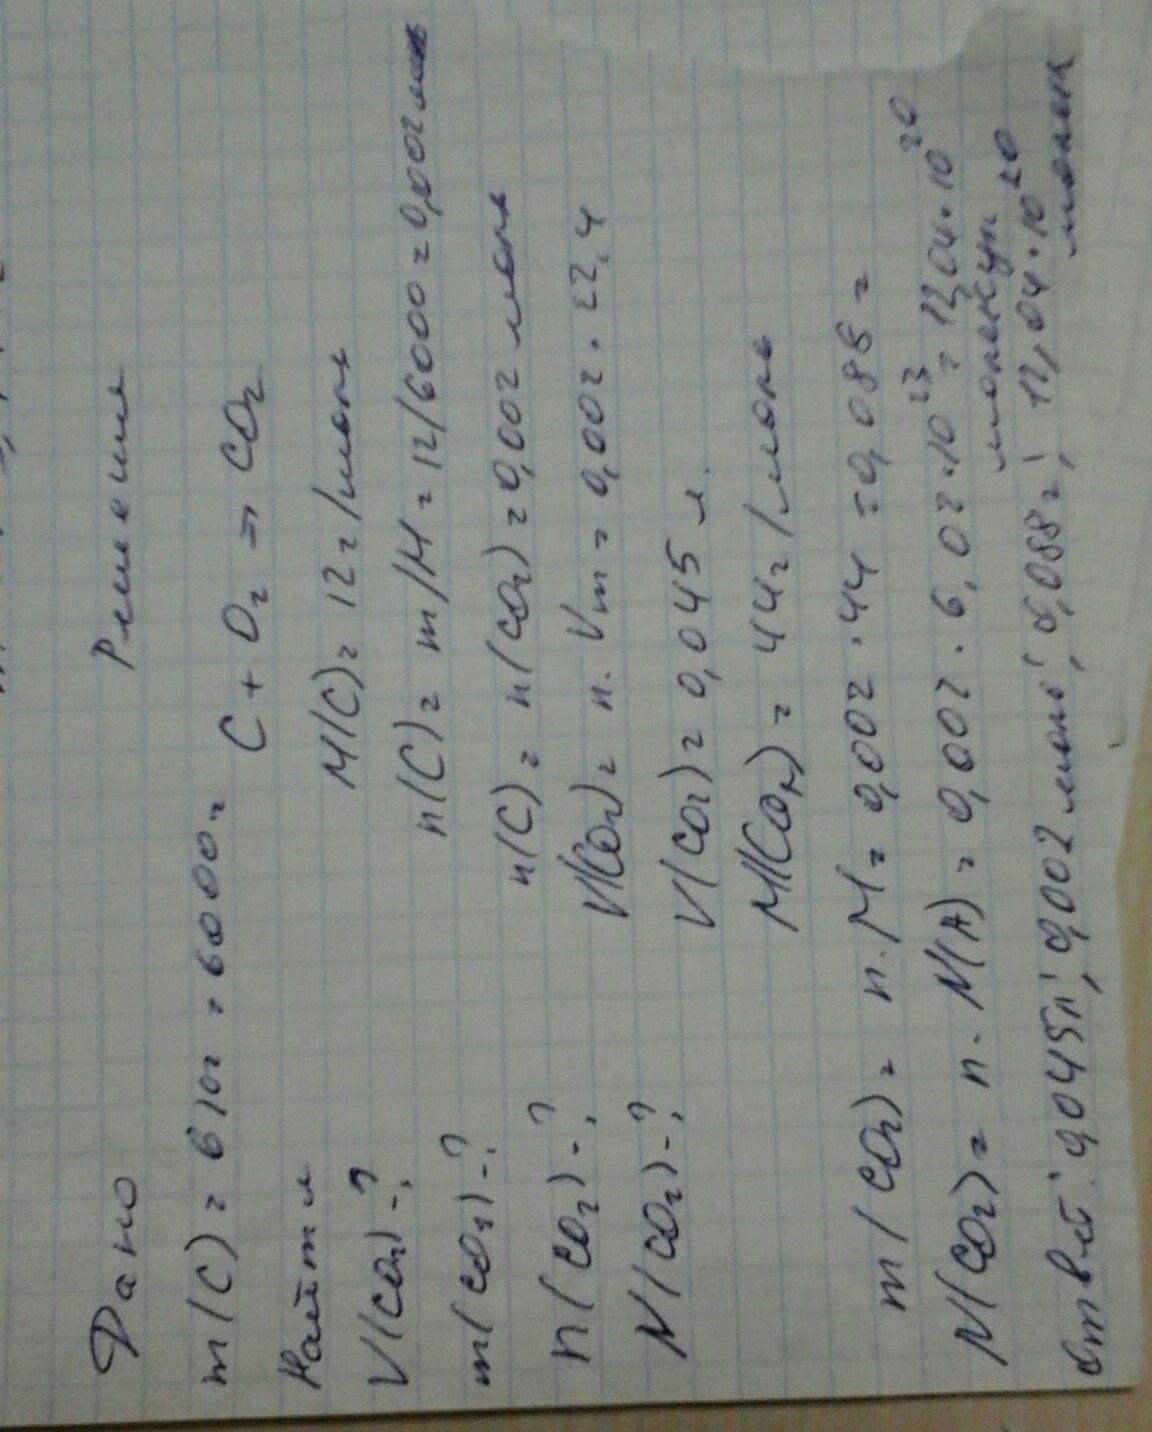 Дано
m(C) = 6 кг = 6000 г
Найти
V(CO₂) - ?
m(CO₂) - ?
n(CO₂) - ?
N(CO₂) - ?
Решение
C + O₂ = CO₂
M(C) = 12 г/моль
n(C) = m/M = 12/6000 = 0,002 моль
n(C) = n(CO₂) = 0,002 моль
V(CO₂) = n · Vm = 0,002 · 22,4
V(CO₂) = 0,045 л.
M(CO₂) = 44 г/моль
m(CO₂) = n · M = 0,002 · 44 = 0,088 г
N(CO₂) = n · N(A) = 0,002 · 6,02 · 10²³ = 12,04 · 10²⁰
молекул
Ответ: 0,045 л; 0,002 моль; 0,088 г; 12,04 · 10²⁰